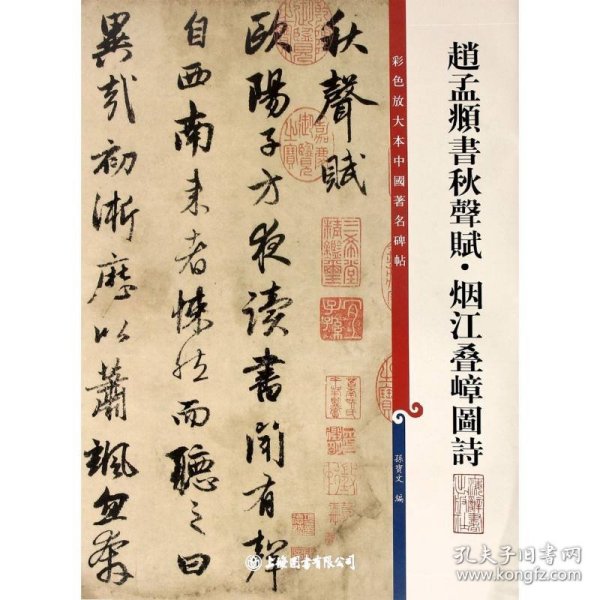 趙孟頫書秋聲賦·烟江叠嶂圖詩
彩色放大本中國著名碑帖
孫寶文 編
秋聲賦
歐陽子方夜讀書聞有聲
自西南来者悚然而聽之曰
異哉初淅歷以蕭颯忽奔
三希堂精鑑璽
宜子孫
上海图書有限公司
孔夫子旧书网
kongfz.com